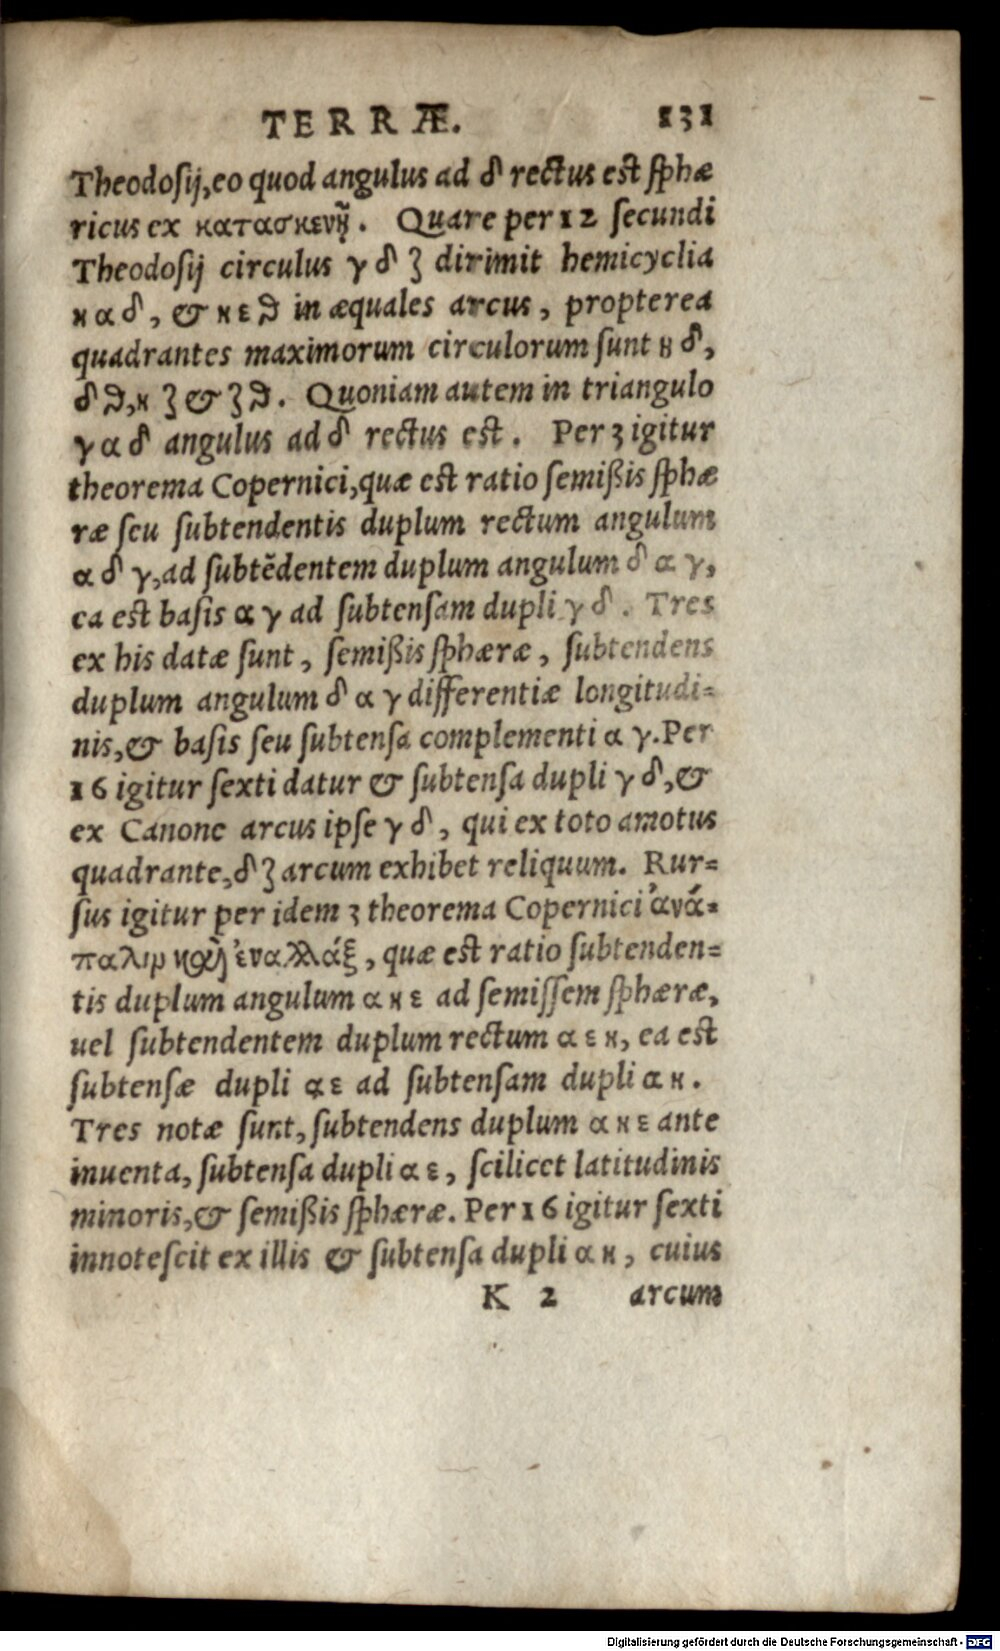 TERRÆ. 131
Theodosij, eo quod angulus ad δ rectus est sphæ
ricus ex κατασκευῆς. Quare per 12 secundi
Theodosij circulus γ δ ζ dirimit hemicyclia
κ α δ, & κ ε ϑ in æquales arcus, propterea
quadrantes maximorum circulorum sunt κ δ,
δ ϑ, κ ζ & ζ ϑ. Quoniam autem in triangulo
γ α δ angulus ad δ rectus est. Per 3 igitur
theorema Copernici, quæ est ratio semißis sphæ
ræ seu subtendentis duplum rectum angulum
α δ γ, ad subtēdentem duplum angulum δ α γ,
ea est basis α γ ad subtensam dupli γ δ. Tres
ex his datæ sunt, semißis sphæræ, subtendens
duplum angulum δ α γ differentiæ longitudi=
nis, & basis seu subtensa complementi α γ. Per
16 igitur sexti datur & subtensa dupli γ δ, &
ex Canone arcus ipse γ δ, qui ex toto amotus
quadrante, δ ζ arcum exhibet reliquum. Rur=
sus igitur per idem 3 theorema Copernici ἀνά=
παλιν καὶ ἐναλλάξ, quæ est ratio subtenden=
tis duplum angulum α κ ε ad semissem sphæræ,
uel subtendentem duplum rectum α ε κ, ea est
subtensæ dupli α ε ad subtensam dupli α κ.
Tres notæ sunt, subtendens duplum α κ ε ante
inuenta, subtensa dupli α ε, scilicet latitudinis
minoris, & semißis sphæræ. Per 16 igitur sexti
innotescit ex illis & subtensa dupli α κ, cuius
K 2 arcum
Digitalisierung gefördert durch die Deutsche Forschungsgemeinschaft - DFG